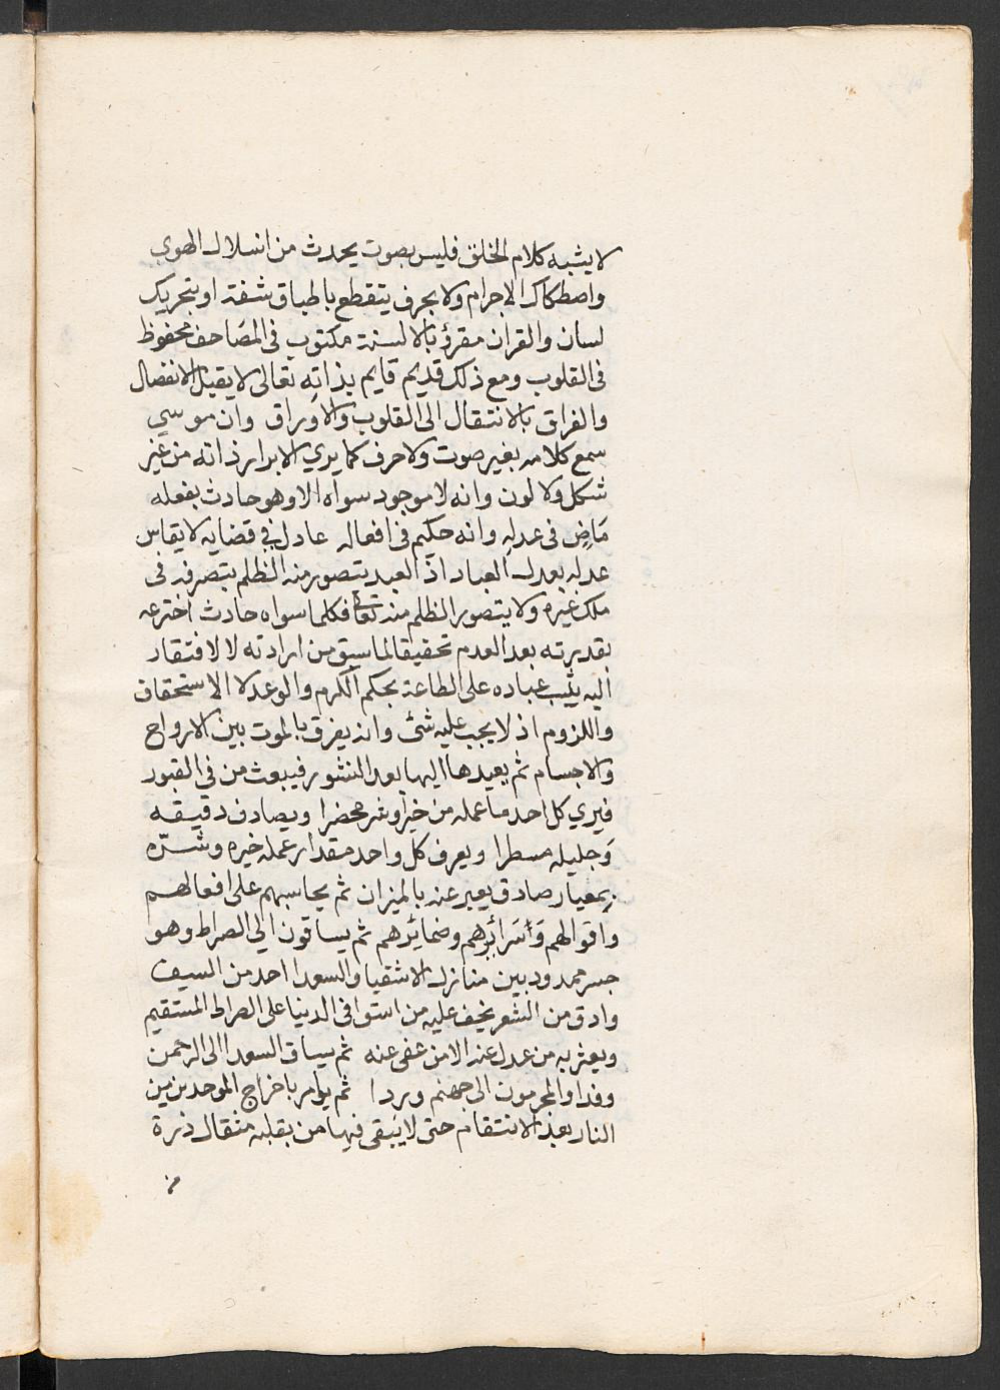 لا يشبه كلام الخلق فليس بصوت يحدث من انسلال الهوي
واصطكاك الاجرام ولا بحرف يتقطع باطباق شفة او بتحريك
لسان والقران مقرؤ بالالسنة مكتوب فى المصاحف محفوظ
فى القلوب ومع ذلك قديم قايم بذاته تعالى لا يقبل الانفصال
والفراق بالانتقال الى القلوب والاوراق وان موسي
سمع كلامه بغير صوت ولا حرف كما يري الابرار ذاته من غير
شكل ولا لون وانه لا موجود سواه الا وهو حادث بفعله
مَاضٍ فى عدله وانه حكيم فى افعاله عادل في قضايه لا يقاس
عدله بعدل العباد اذ العبد يتصور منه الظلم بتصرفه فى
ملك غيره ولا يتصور الظلم منه تعالى فكلما سواه حادث اخترعه
بقدرته بعد العدم تحقيقا لما سبق من ارادته لا لافتقار
اليه يثيب عباده على الطاعة بحكم الكرم والوعد لا الاستحقاق
واللزوم اذ لا يجب عليه شئ وانه يفرق بالموت بين الارواح
والاجسام ثم يعيدها اليها بعد النشور فيبعث من في القبور
فيري كل احد ما عمله من خير او شر محضرا ويصادف دقيقه
وَجليله مسطرا ويعرف كل واحد مقدار عمله خيره وشرّه
بمعيار صادق يعبر عنه بالميزان ثم يحاسبهم على افعالهم
واقوالهم وَسَرائرهم وضمائرهم ثم يساقون الي الصراط وهو
جسر ممدود بين منازل الاشقيا والسعدا احد من السيف
وادق من الشعر يخف عليه من استوا فى الدنيا على الصراط المستقيم
ويعثر به من عدل عنه الا من عفى عنه ثم يساق السعدا الى الرحمن
وفدا والمجرمون الى جهنم وردا ثم يؤمر باخراج الموحدين من
النار بعد الانتقام حتى لا يبقى فيها من بقلبه مثقال ذرة
من